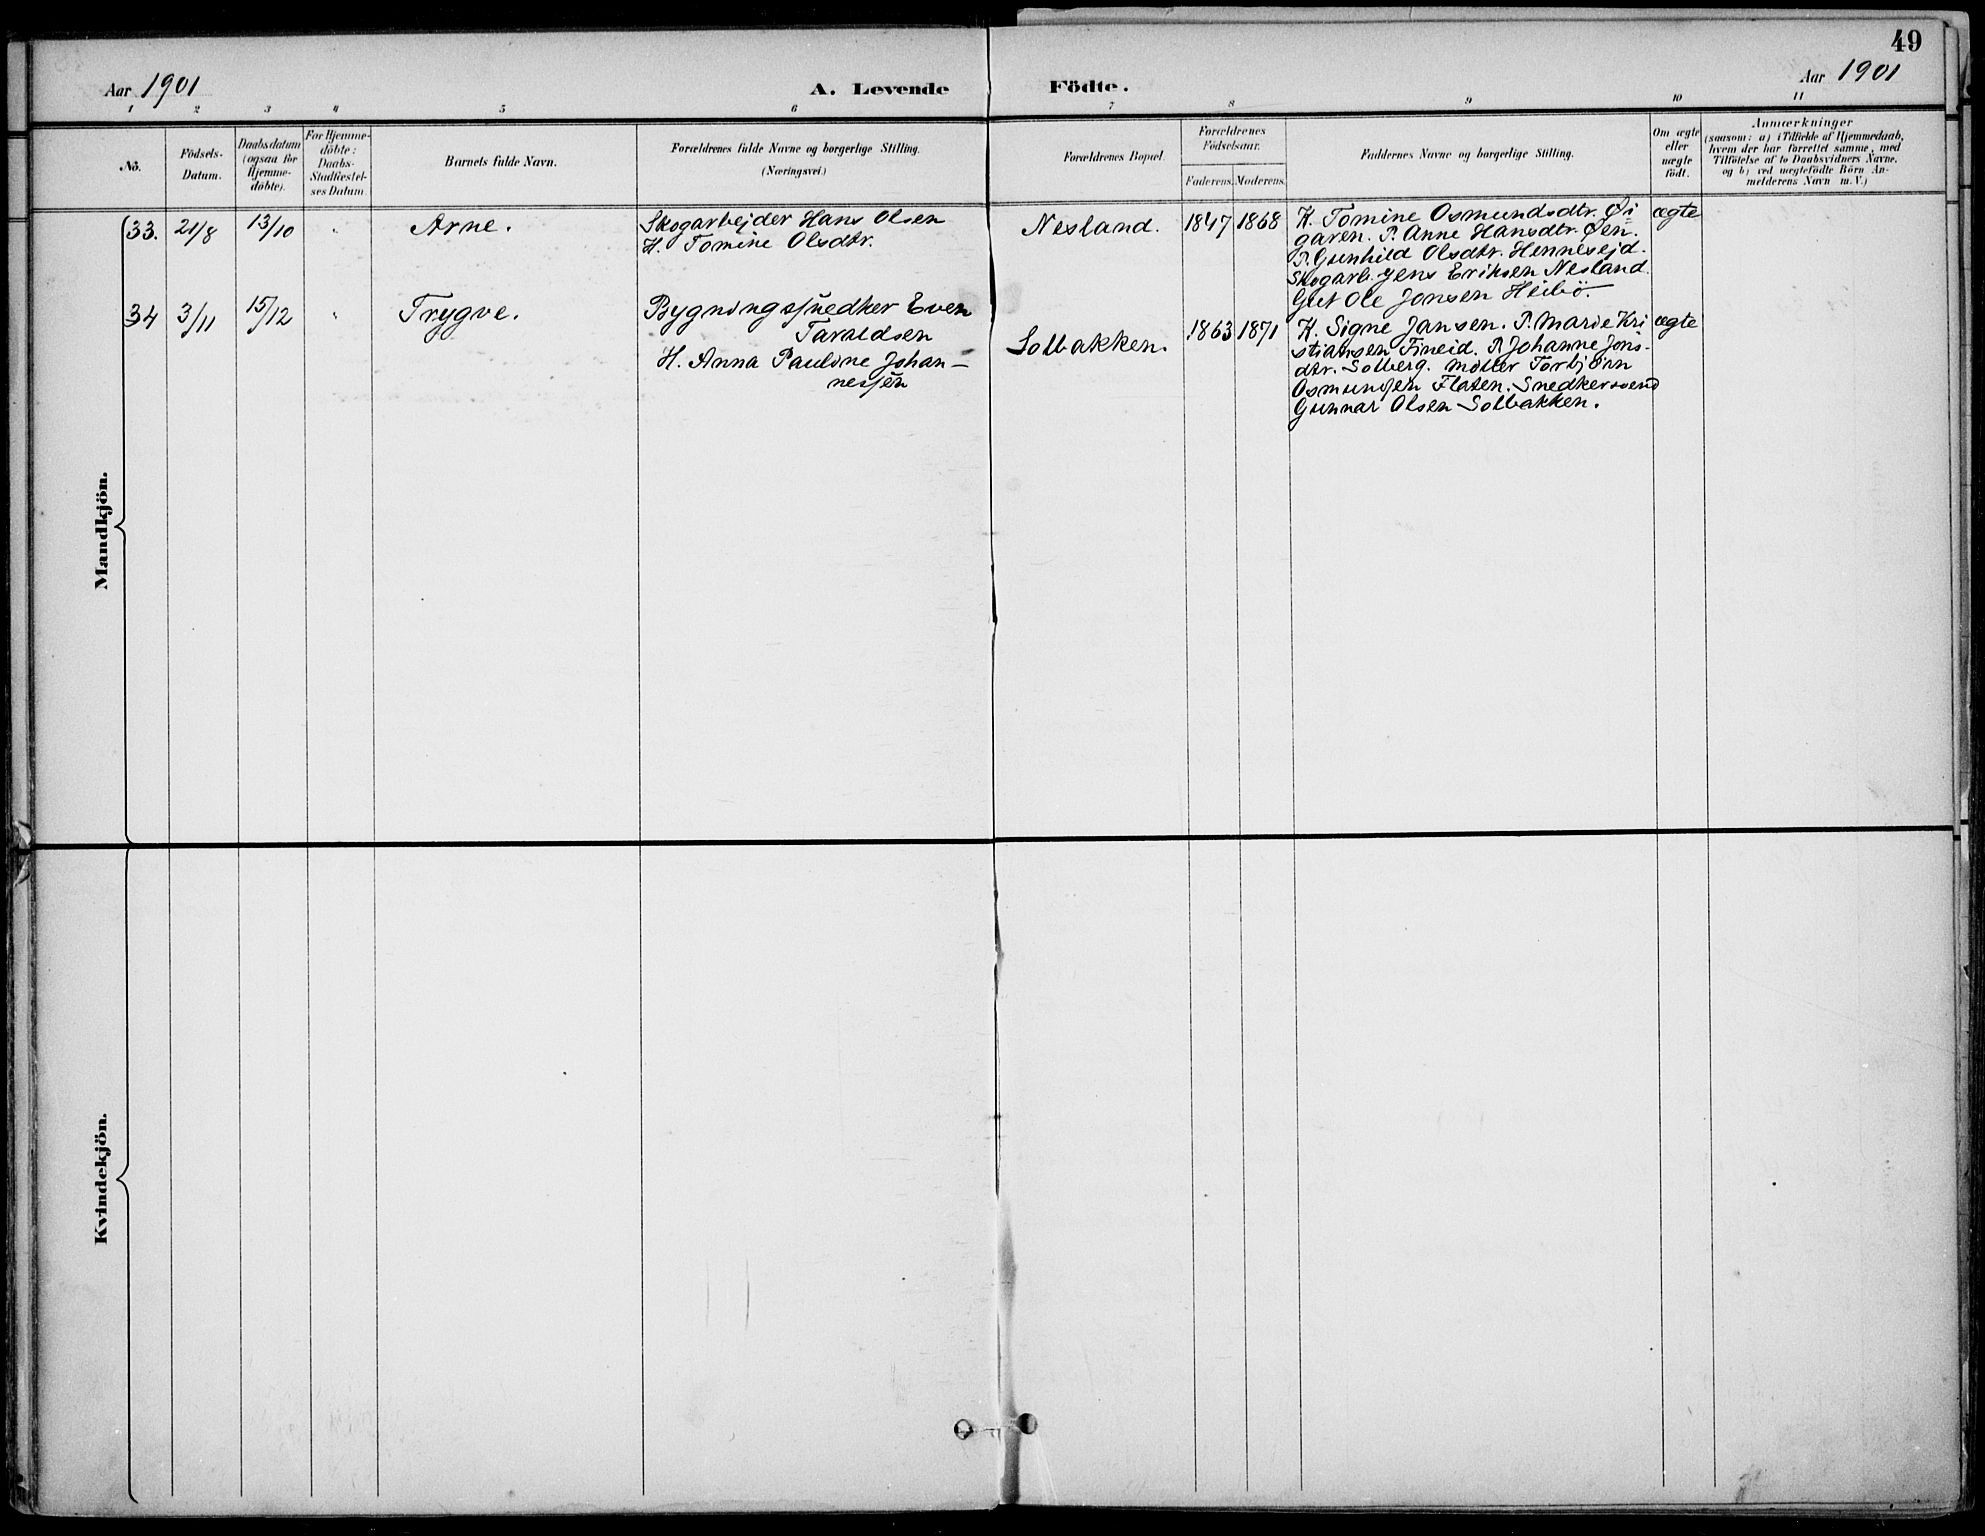 49
Aar 1901
A. Levende Födte.
Aar 1901
1 2 3 4 5 6 7 8 9 10 11
No.
Födsels-
Datum.
Daabsdatum
(ogsaa for
Hjemme-
døbte).
For Hjemme-
döbte:
Daabs-
Stadfæstel-
ses Datum
Barnets fulde Navn.
Forældrenes fulde Navne og borgerlige Stilling.
(Næringsvei.)
Forældrenes Bopæl.
Forældrenes
Födselsaar.
Faderens. Moderens.
Faddernes Navne og borgerlige Stilling.
Om ægte
eller
uægte
födt.
Anmærkninger
(saasom: a) i Tilfælde af Hjemmedaab,
hvem der har forrettet samme, med
Tilföielse af to Daabsvidners Navne.
og b) ved uægtefödte Börn An-
melderens Navn m. V.)
Mandkjön.
33. 21/8 13/10 " Arne.
Skogarbejder Hans Olsen
H. Tomine Olsdtr.
Nesland.
1847 1868
K. Tomine Osmundsdtr. Øi=
garen. P. Anne Hansdtr. Øen.
P. Gunhild Olsdtr. Hennesejd.
Skogarb. Jens Eriksen Nesland.
Gut Ole Jonsen Heibö.
ægte
34 3/11 15/12 " Trygve.
Bygningssnedker Even
Taraldsen
H. Anna Pauline Johan-
nessen
Solbakken.
1863 1871
K. Signe Jansen. P. Marie Kri
stiansen Fineid. P. Johanne Jons-
dtr. Solberg. Möller Torbjörn
Osmunsen Flaten. Snedkersvend
Gunnar Olsen Solbakken.
ægte
Kvindekjön.